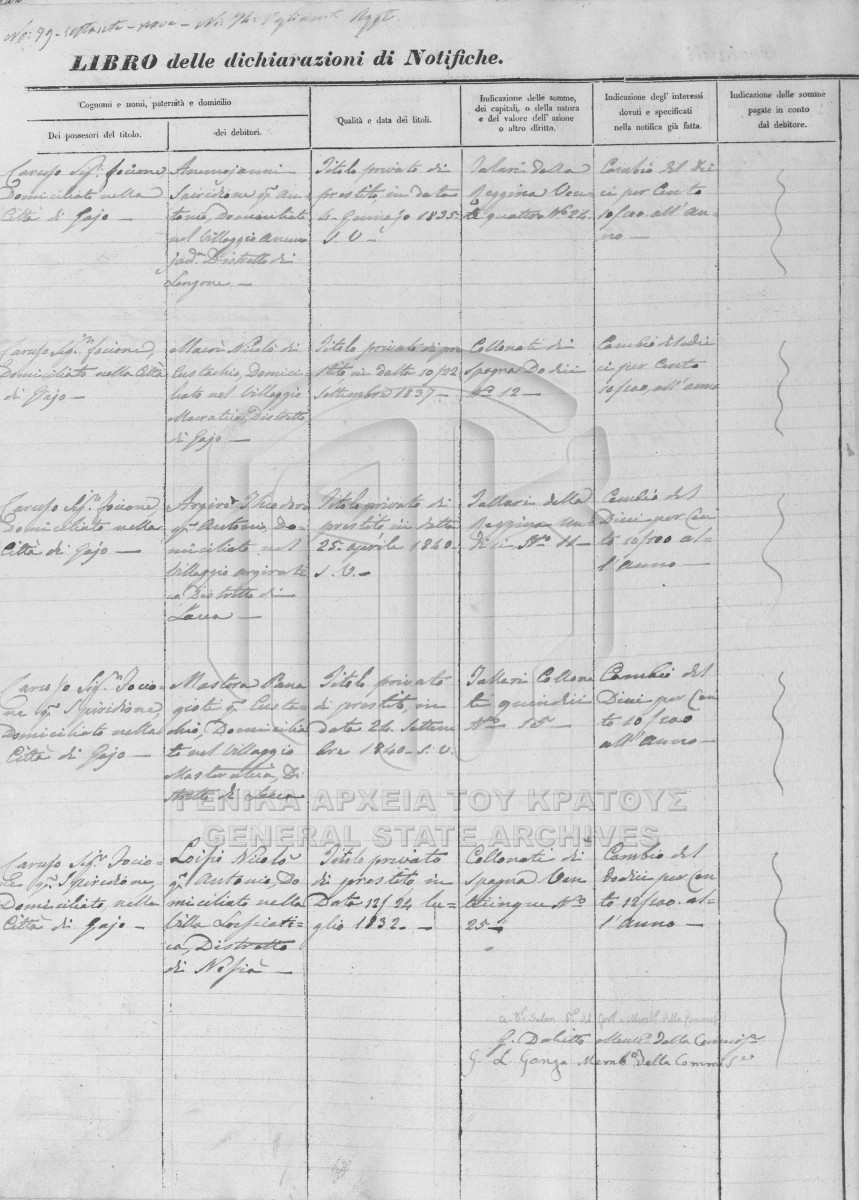 No: 79 - settanta - nove - No: 74: Vigliam.
LIBRO delle dichiarazioni di Notifiche.
Cognomi e nomi, paternità e domicilio
Dei possesori del titolo.
dei debitori.
Qualità e data dei titoli.
Indicazione delle somme,
dei capitali, o della natura
e del valore dell' azione
o altro diritto.
Indicazione degl' interessi
dovuti e specificati
nella notifica già fatta.
Indicazione delle somme
pagate in conto
dal debitore.
Caruso Sig.r Focione
Domiciliato nella
Città di Gajo —
Anemojanni
Spiridione q.m An-
tonio, Domiciliato
nel Villaggio Anemo
jad. Distretto di
Lengone —
Titolo privato di
prestito, in data
4. Gennajo 1835.
S. V. —
Talari della
Reggina Ven-
ti quattro No 24.
Cambio del dic
ci per Cento
10/100. all'An-
no —
Caruso Sig.r Focione,
Domiciliato nella Città
di Gajo —
Macrì Nicolò di
Eustachio, Domici-
liato nel Villaggio
Macratica, Distretto
di Gajo —
Titolo privato di pre
stito in datta 10/22
Settembre 1837. —
Collonati di
Spagna Dodici
No 12 —
Cambio del dic
ci per Cento
10/100, all'anno
Caruso Sig.r Focione
Domiciliato nella
Città di Gajo —
Argirò Theodoro
q.m Antonio, Do-
miciliato nel
Villaggio Argirati
ca Distretto di
Lacca —
Titolo privato di
prestito in datta
25. aprile 1840.
S. V. —
Tallari della
Reggina Un
dici No 11 —
Cambio del
Dieci per Cen
to 10/100 al-
l'Anno —
Caruso Sig.r Focio-
ne q.m Spiridione,
Domiciliato nella
Città di Gajo —
Mastora Pana
gioti q.m Eusta-
chio, Domicilia
to nel Villaggio
Mastoratica, Di
stretto di Lacca
Titolo privato
di prestito, in
data 24. Settem
bre 1840. S. V.
Tallari Collona
ti quindici
No 15 —
Cambio del
Dieci per Cen
to 10/100
all'Anno —
ΓΕΝΙΚΑ ΑΡΧΕΙΑ ΤΟΥ ΚΡΑΤΟΥΣ
GENERAL STATE ARCHIVES
Caruso Sig.r Focio-
ne q.m Spiridione,
Domiciliato, nella
Città di Gajo —
Loipiò Nicolò
q.m Antonio, Do
miciliato nella
Villa Loipiati-
ca, Distretto
di Nisia —
Titolo privato
di prestito in
Data 12/24 lu-
glio 1832. —
Collonati di
Spagna Ven
ticinque No
25 —
Cambio del
dodici per Cen
to 12/100. al-
l'Anno —
Memb.o della Commis.ne
G. L. Gonga Memb.o della Commis.ne